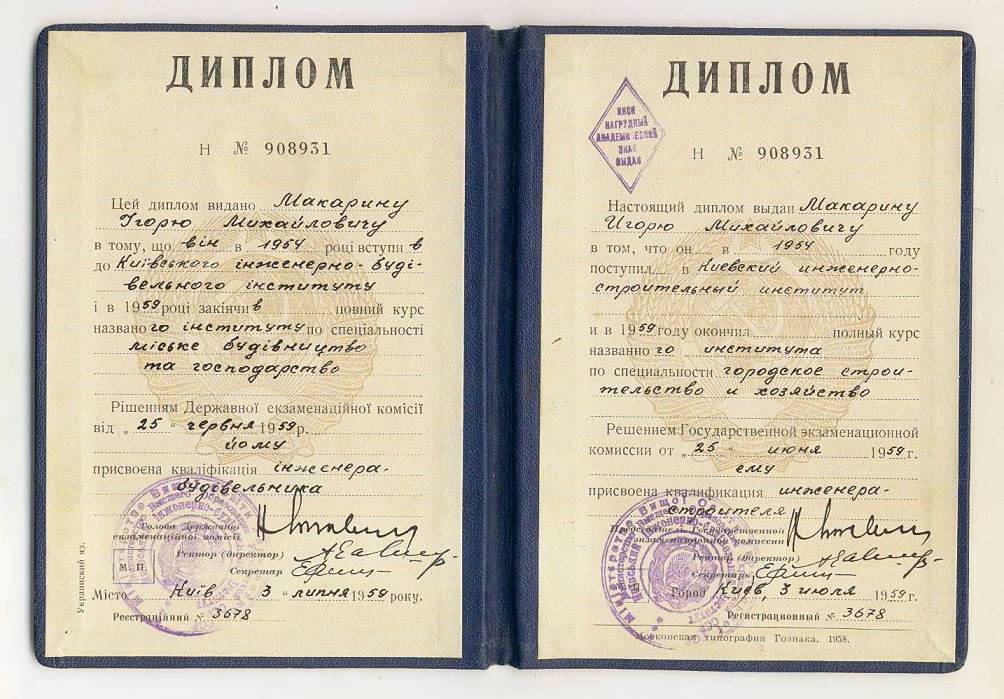 ДИПЛОМ
Н № 908931
Цей диплом видано Макарину
Ігорю Михайловичу
в тому, що він в 1954 році вступив
до Київського інженерно-буді-
вельного інституту
і в 1959 році закінчив повний курс
названого інституту по спеціальності
міське будівництво
та господарство
Рішенням Державної екзаменаційної комісії
від „25“ червня 1959 р.
йому
присвоєна кваліфікація інженера-
будівельника
Голова Державної
екзаменаційної комісії
Ректор (директор)
Секретар
М. П.
Місто Київ 3 „ липня 1959 року.
Реєстраційний № 3678
Украинский яз.
ДИПЛОМ
КИСИ
НАГРУДНЫЙ
АКАДЕМИЧЕСКИЙ
ЗНАК
ВЫДАН
Н № 908931
Настоящий диплом выдан Макарину
Игорю Михайловичу
в том, что он в 1954 году
поступил в Киевский инженерно-
строительный институт
и в 1959 году окончил полный курс
названного института
по специальности городское строи-
тельство и хозяйство
Решением Государственной экзаменационной
комиссии от „25“ июня 1959 г.
ему
присвоена квалификация инженера-
строителя
Председатель Государственной
экзаменационной комиссии
Ректор (директор)
Секретарь
Город Киев, 3 июля 1959 г.
Регистрационный № 3678
Московская типография Гознака, 1958.